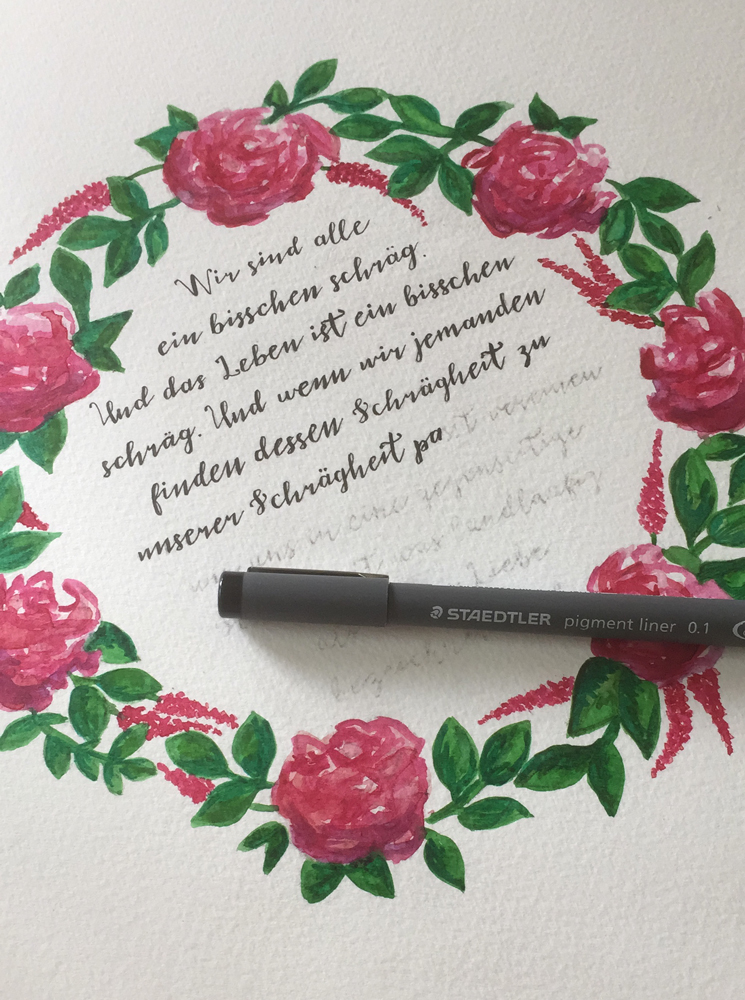 Wir sind alle
ein bisschen schräg.
Und das Leben ist ein bisschen
schräg. Und wenn wir jemanden
finden dessen Schrägheit zu
unserer Schrägheit pa st vereinen
uns in eine gegenseitige
was landläufig
Liebe
STAEDTLER pigment liner 0.1